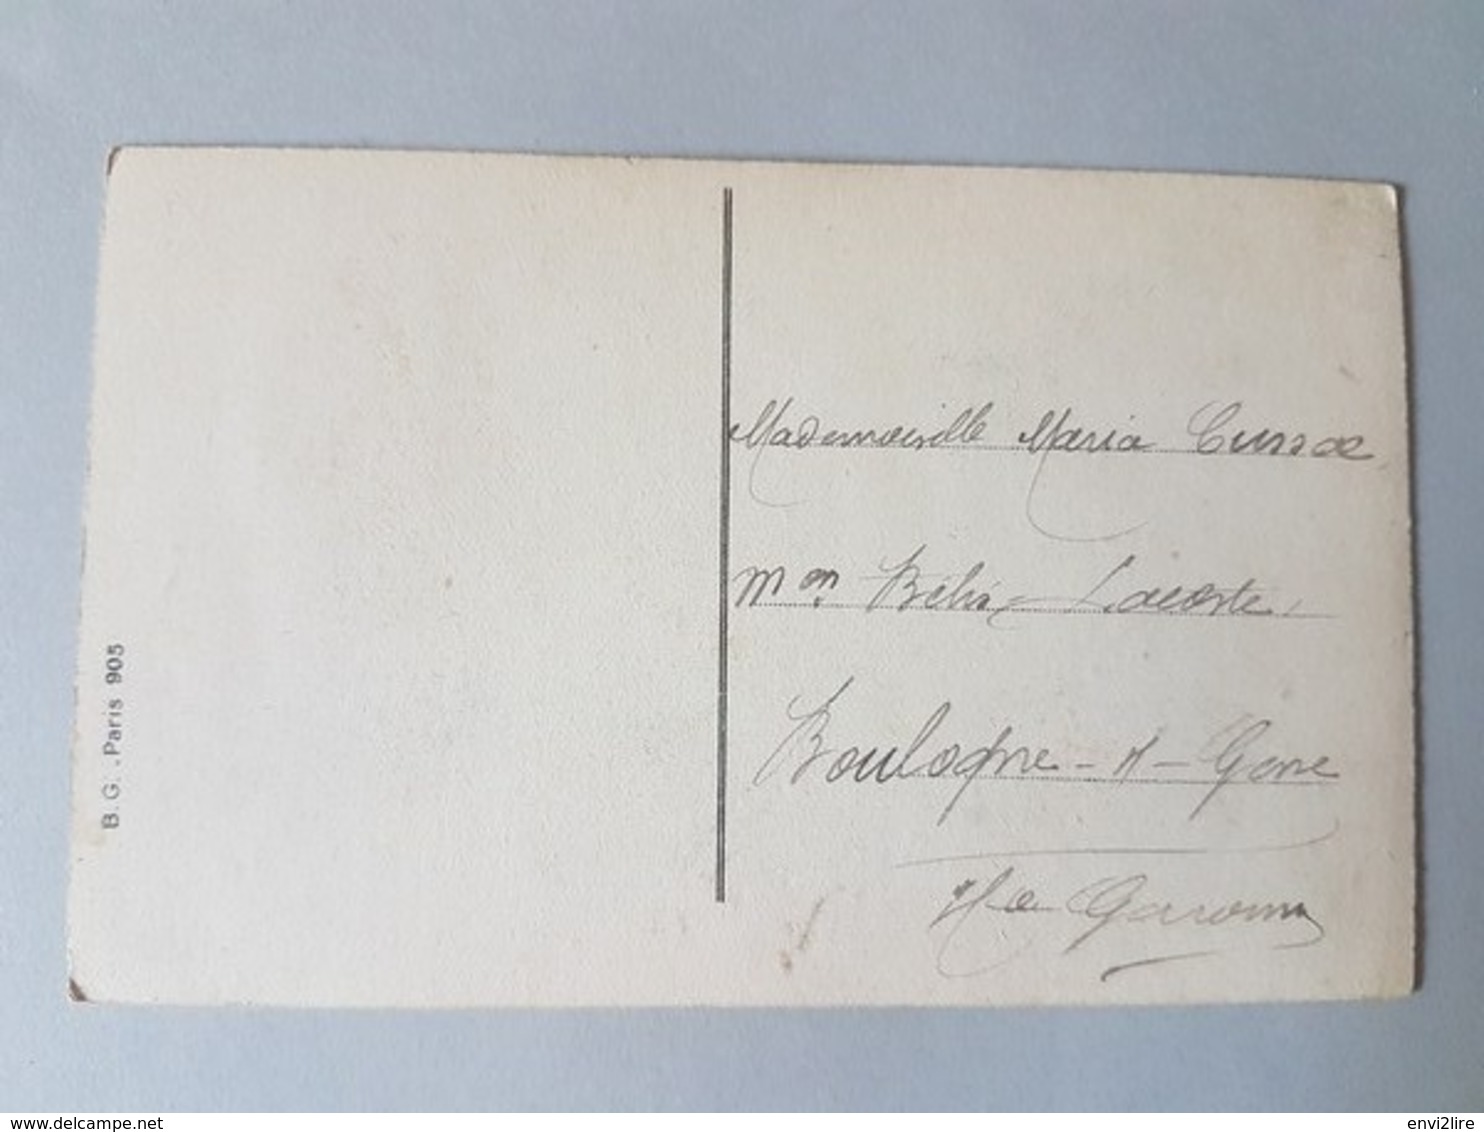 B. G. . Paris 905
Mademoiselle Maria
mon Lacoste,
Boulogne - s - Gesse
Hte Garonne
www.delcampe.net
envi2lire